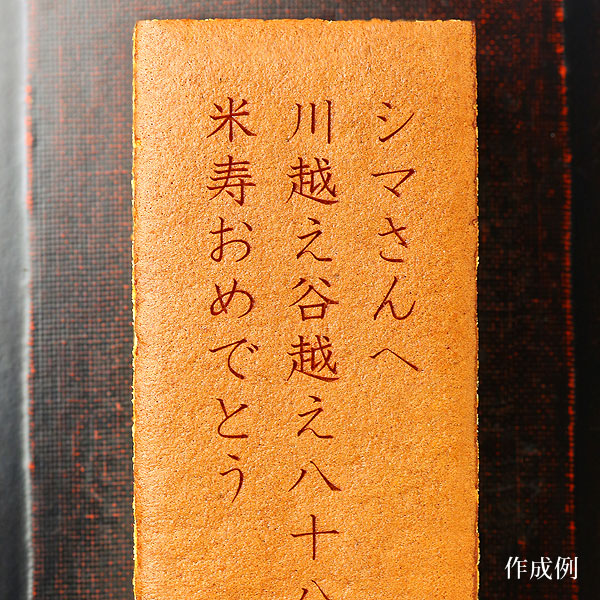 シマさんへ
川越え谷越え八十八
米寿おめでとう
作成例